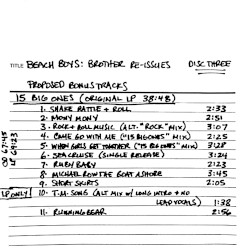 TITLE BEACH BOYS: BROTHER RE-ISSUES DISC THREE
PROPOSED BONUS TRACKS
15 BIG ONES (ORIGINAL LP 38:48)
1. SHAKE RATTLE + ROLL 2:33
2. MONY MONY 2:51
3. ROCK + ROLL MUSIC (ALT. "ROCK" MIX) 3:07
4. COME GO WITH ME ("15 BIG ONES" MIX) 2:25
5. WHEN GIRLS GET TOGETHER ("15 BIG ONES" MIX) 3:28
6. SEA CRUISE (SINGLE RELEASE) 3:24
7. RUBY BABY 2:23
8. MICHAEL ROW THE BOAT ASHORE 3:45
9. SHORT SKIRTS 2:05
LP ONLY! 10. T.M. SONG (ALT MIX W/ LONG INTRO + NO
LEAD VOCALS) 1:38
11. RUNNING BEAR 2:56
CD 67:45
LP 69:23